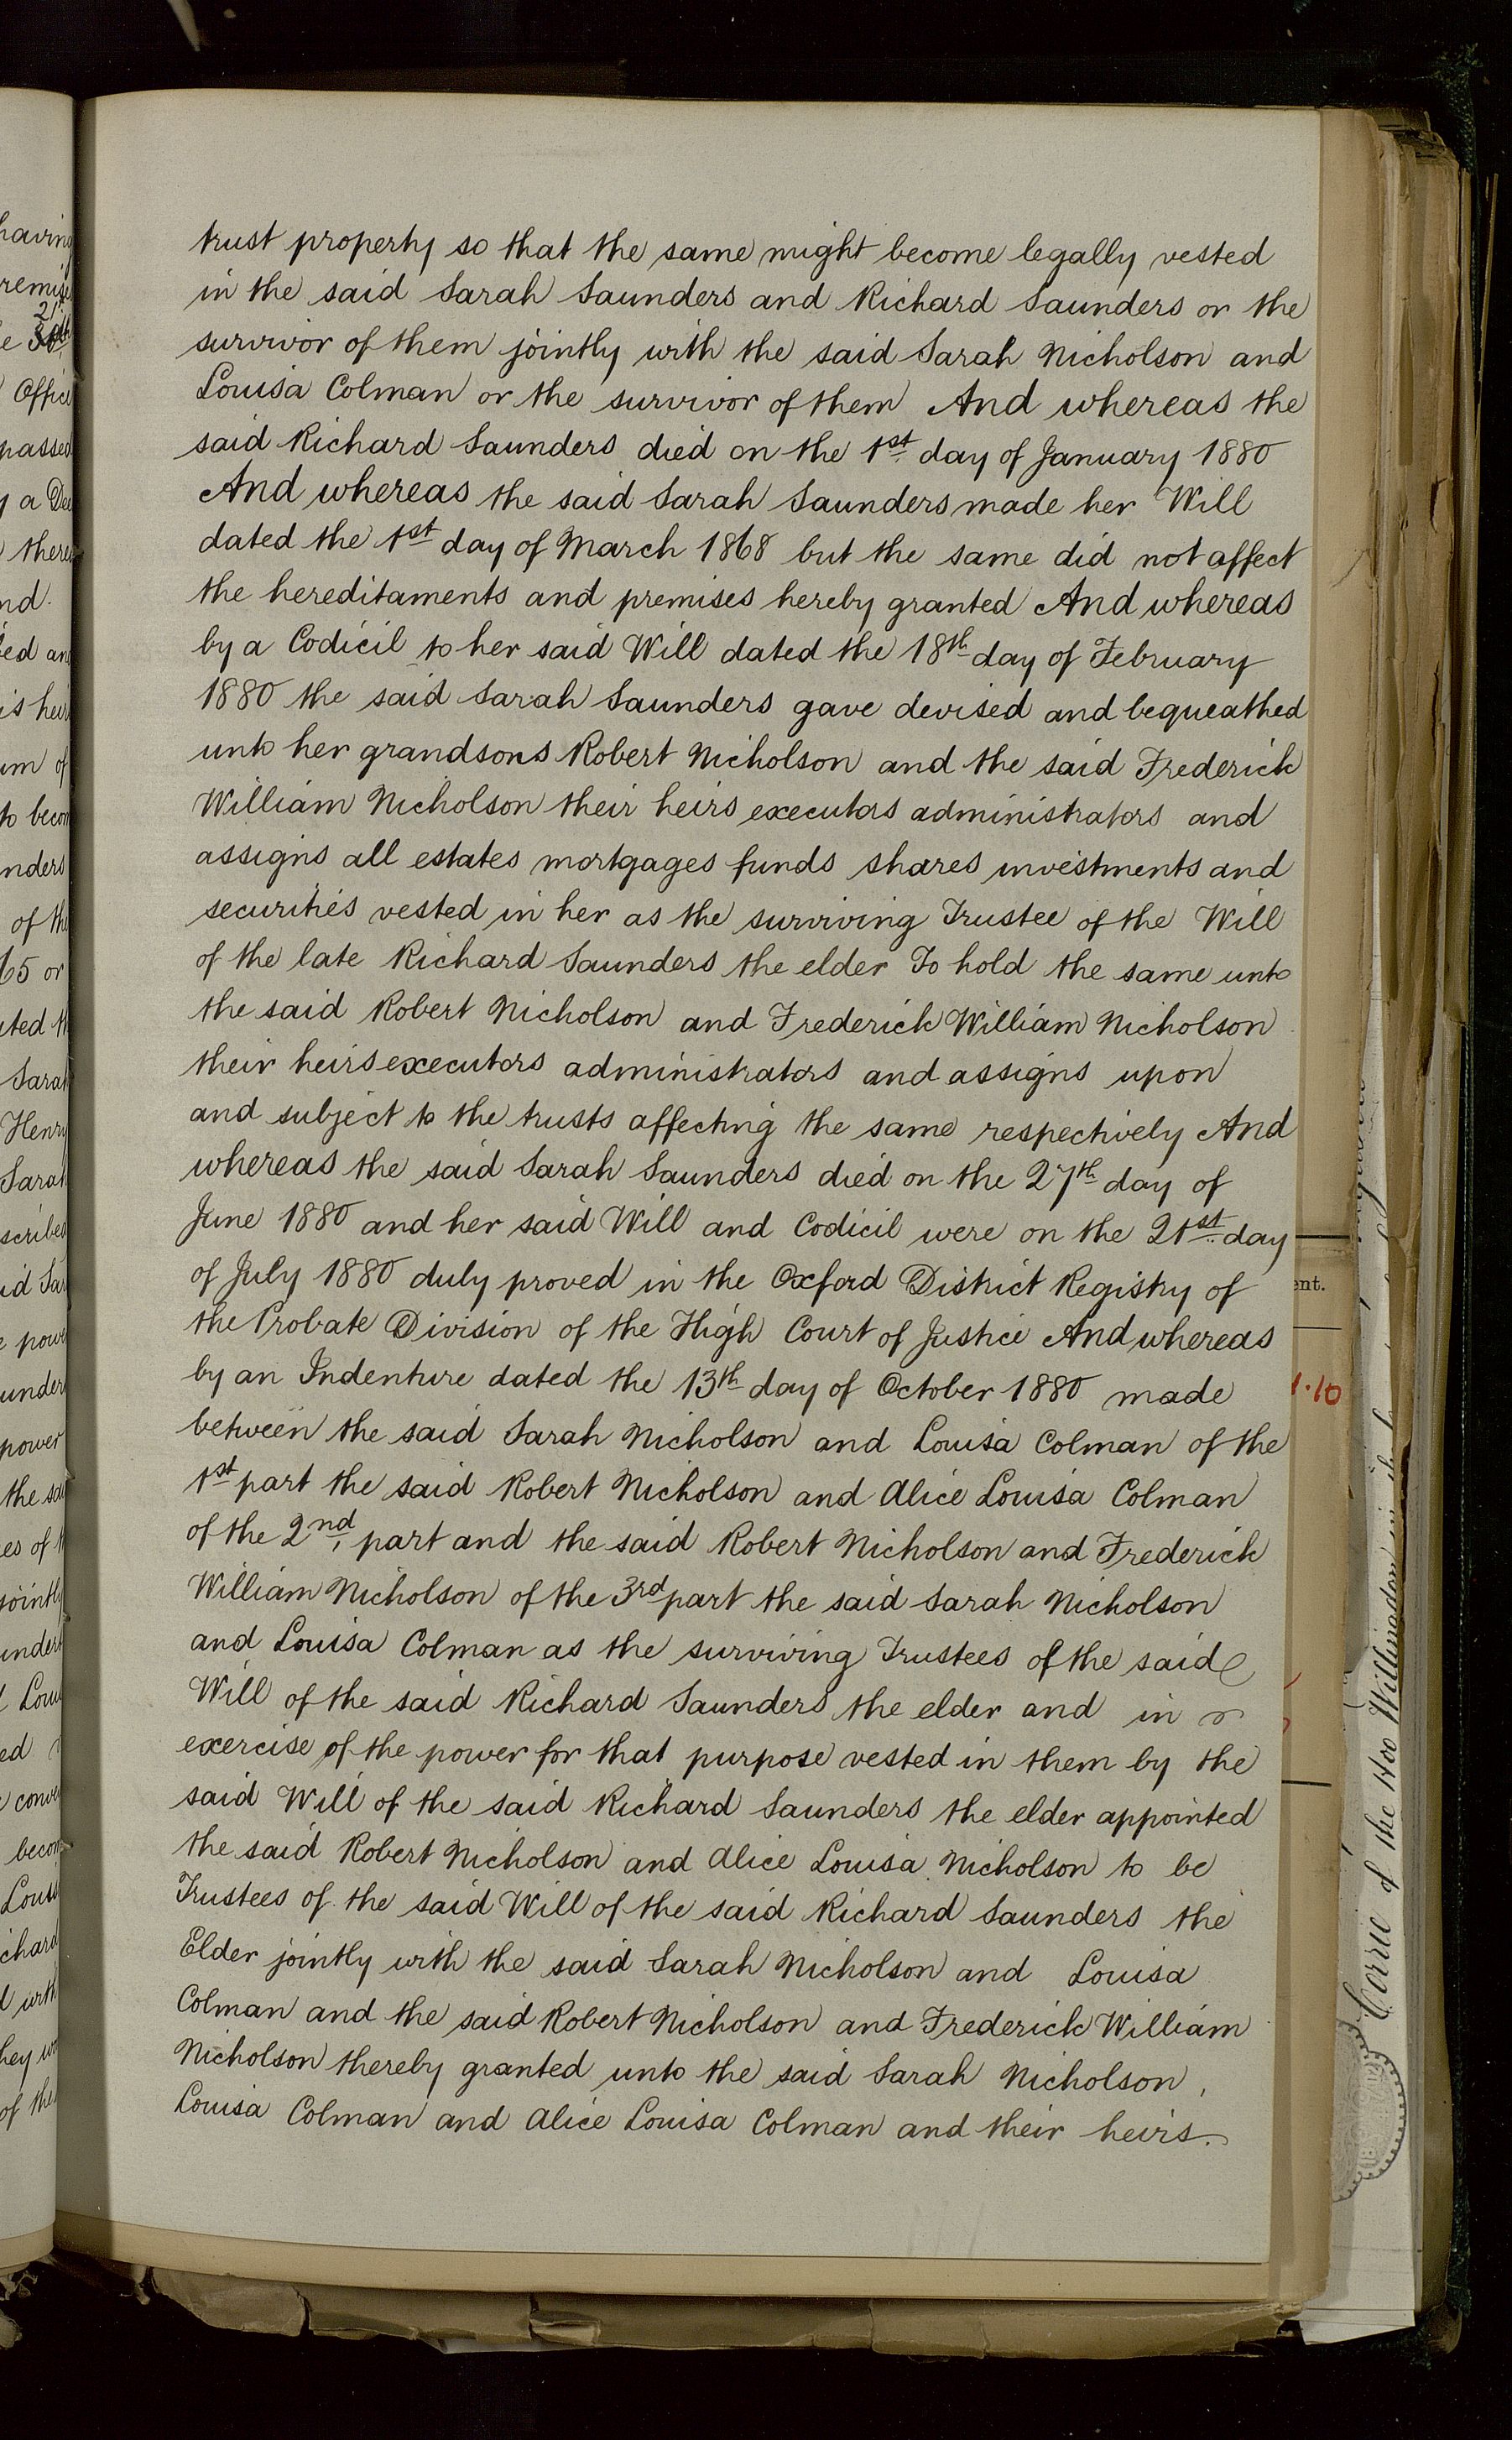 trust property so that the same might become legally vested
in the said Sarah Saunders and Richard Saunders or the
survivor of them jointly with the said Sarah Nicholson and
Louisa Colman or the survivor of them And whereas the
said Richard Saunders died on the 1st day of January 1880
And whereas the said Sarah Saunders made her Will
dated the 1st day of March 1868 but the same did not affect
the hereditaments and premises hereby granted And whereas
by a Codicil to her said Will dated the 18th day of February
1880 the said Sarah Saunders gave devised and bequeathed
unto her grandsons Robert Nicholson and the said Frederick
William Nicholson their heirs executors administrators and
assigns all estates mortgages funds shares investments and
securities vested in her as the surviving Trustee of the Will
of the late Richard Saunders the elder To hold the same unto
the said Robert Nicholson and Frederick William Nicholson
their heirs executors administrators and assigns upon
and subject to the trusts affecting the same respectively And
whereas the said Sarah Saunders died on the 27th day of
June 1880 and her said Will and Codicil were on the 21st day
of July 1880 duly proved in the Oxford District Registry of
the Probate Division of the High Court of Justice And whereas
by an Indenture dated the 13th day of October 1880 made
between the said Sarah Nicholson and Louisa Colman of the
1st part the said Robert Nicholson and Alice Louisa Colman
of the 2nd part and the said Robert Nicholson and Frederick
William Nicholson of the 3rd part the said Sarah Nicholson
and Louisa Colman as the surviving Trustees of the said
Will of the said Richard Saunders the elder and in
exercise of the power for that purpose vested in them by the
said Will of the said Richard Saunders the elder appointed
the said Robert Nicholson and Alice Louisa Nicholson to be
Trustees of the said Will of the said Richard Saunders the
Elder jointly with the said Sarah Nicholson and Louisa
Colman and the said Robert Nicholson and Frederick William
Nicholson thereby granted unto the said Sarah Nicholson,
Louisa Colman and Alice Louisa Colman and their heirs.
having
Office
passed
a
of
nders
of the
65 or
Sarah
Henry
power
the
of
jointly
ent.
1.10
of the Hoo Willingdon in the